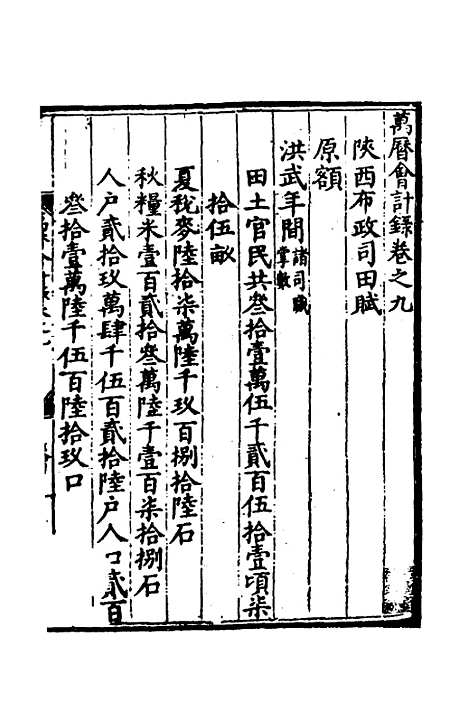 萬曆會計錄卷之九
陝西布政司田賦
原額
洪武年間諸司職掌數
田土官民共叄拾壹萬伍千貳百伍拾壹頃柒
拾伍畝
夏稅麥陸拾柒萬陸千玖百捌拾陸石
秋糧米壹百貳拾叄萬陸千壹百柒拾捌石
人户貳拾玖萬肆千伍百貳拾陸户人口貳百
叄拾壹萬陸千伍百陸拾玖口